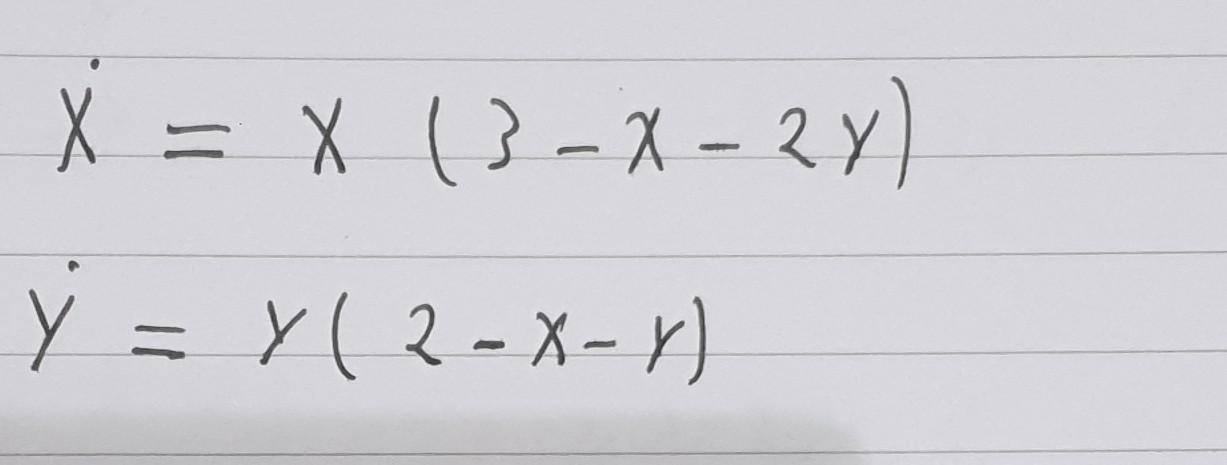 ẋ = x (3 - x - 2y)
ẏ = y (2 - x - y)